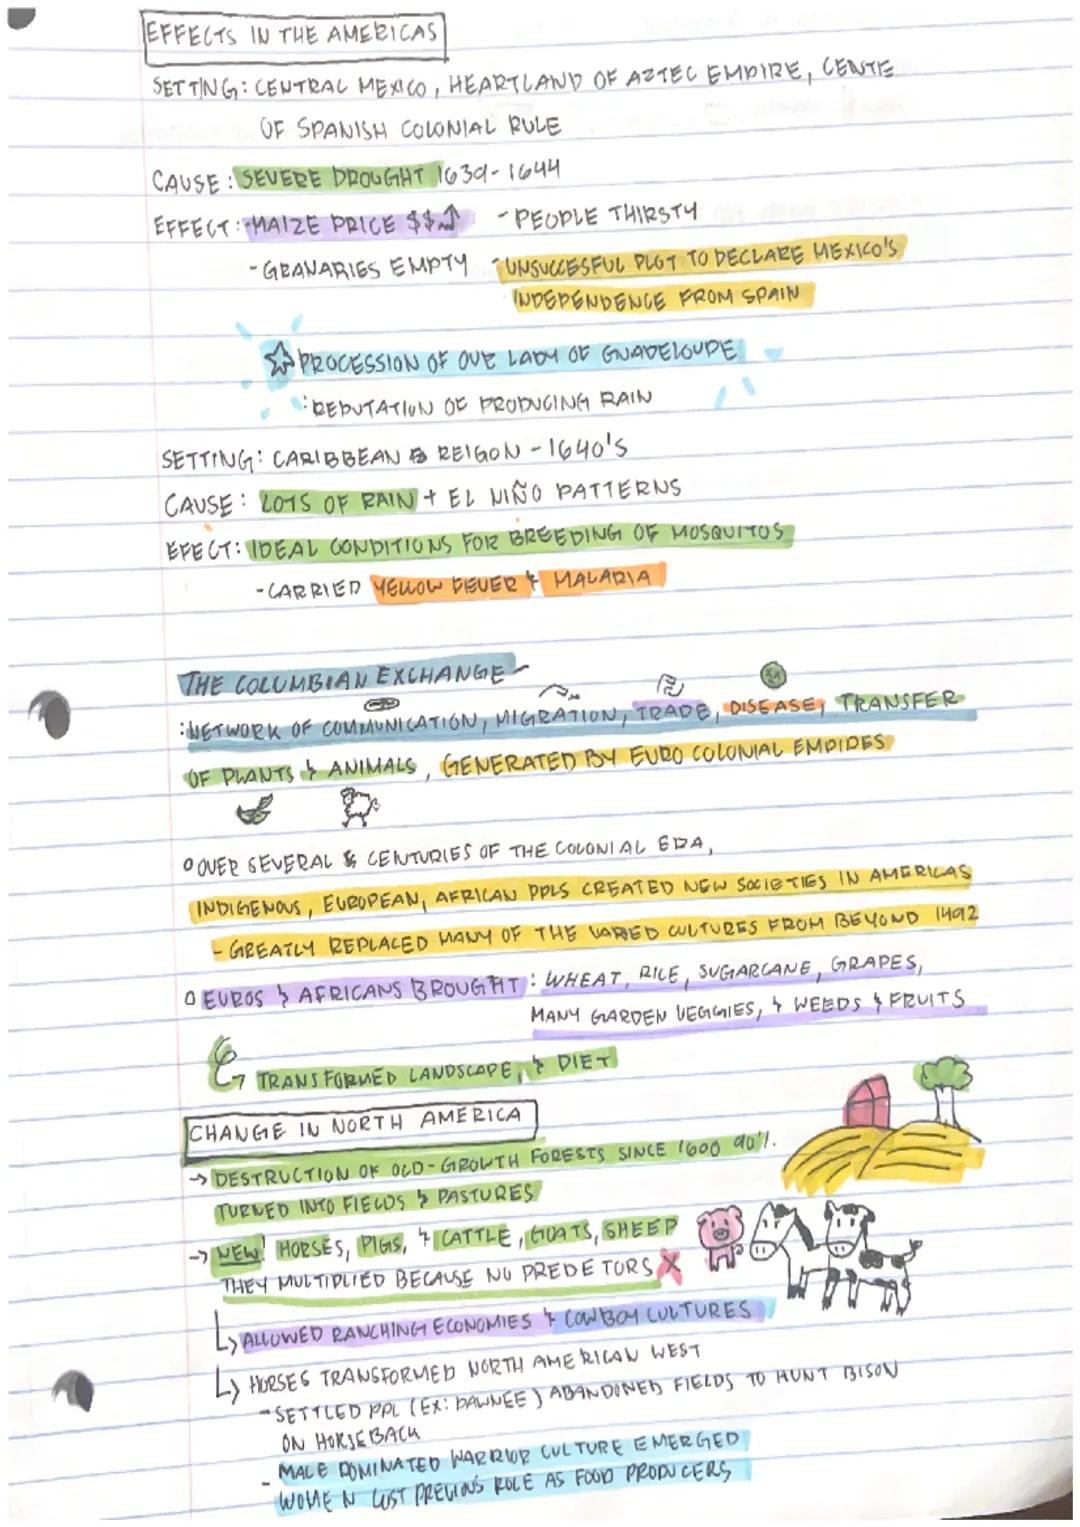 EFFECTS IN THE AMERICAS
SETTING: CENTRAL MEXICO, HEARTLAND OF AZTEC EMPIRE, CENTE
OF SPANISH COLONIAL RULE
CAUSE: SEVERE DROUGHT 1639-1644
EFFECT: -MAIZE PRICE $$↑ -PEOPLE THIRSTY
-GRANARIES EMPTY -UNSUCCESFUL PLOT TO DECLARE MEXICO'S
INDEPENDENCE FROM SPAIN
☆ PROCESSION OF OUR LADY OF GUADELOUPE
: REPUTATION OF PRODUCING RAIN
SETTING: CARIBBEAN REIGON - 1640'S
CAUSE: LOTS OF RAIN + EL NIÑO PATTERNS
EFFECT: IDEAL CONDITIONS FOR BREEDING OF MOSQUITOS
-CARRIED YELLOW FEVER & MALARIA
THE COLUMBIAN EXCHANGE
: NETWORK OF COMMUNICATION, MIGRATION, TRADE, DISEASE, TRANSFER
OF PLANTS & ANIMALS, GENERATED BY EURO COLONIAL EMPIRES
O OVER SEVERAL CENTURIES OF THE COLONIAL ERA,
INDIGENOUS, EUROPEAN, AFRICAN PPLS CREATED NEW SOCIETIES IN AMERICAS
- GREATLY REPLACED MANY OF THE VARIED CULTURES FROM BEYOND 1492
O EUROS & AFRICANS BROUGHT: WHEAT, RICE, SUGARCANE, GRAPES,
MANY GARDEN VEGGIES, & WEEDS & FRUITS
TRANSFORMED LANDSCAPE, & DIET
CHANGE IN NORTH AMERICA
→ DESTRUCTION OF OLD-GROWTH FORESTS SINCE 1600 90%.
TURNED INTO FIELDS & PASTURES
→ NEW! HORSES, PIGS, & CATTLE, GOATS, SHEEP
THEY MULTIPLIED BECAUSE NO PREDETORS X
↳ ALLOWED RANCHING ECONOMIES & COWBOY CULTURES
↳ HORSES TRANSFORMED NORTH AMERICAN WEST
-SETTLED PPL (EX: PAWNEE) ABANDONED FIELDS TO HUNT BISON
ON HORSEBACK
- MALE DOMINATED WARRIOR CULTURE EMERGED
- WOMEN LOST PREVIOUS ROLE AS FOOD PRODUCERS